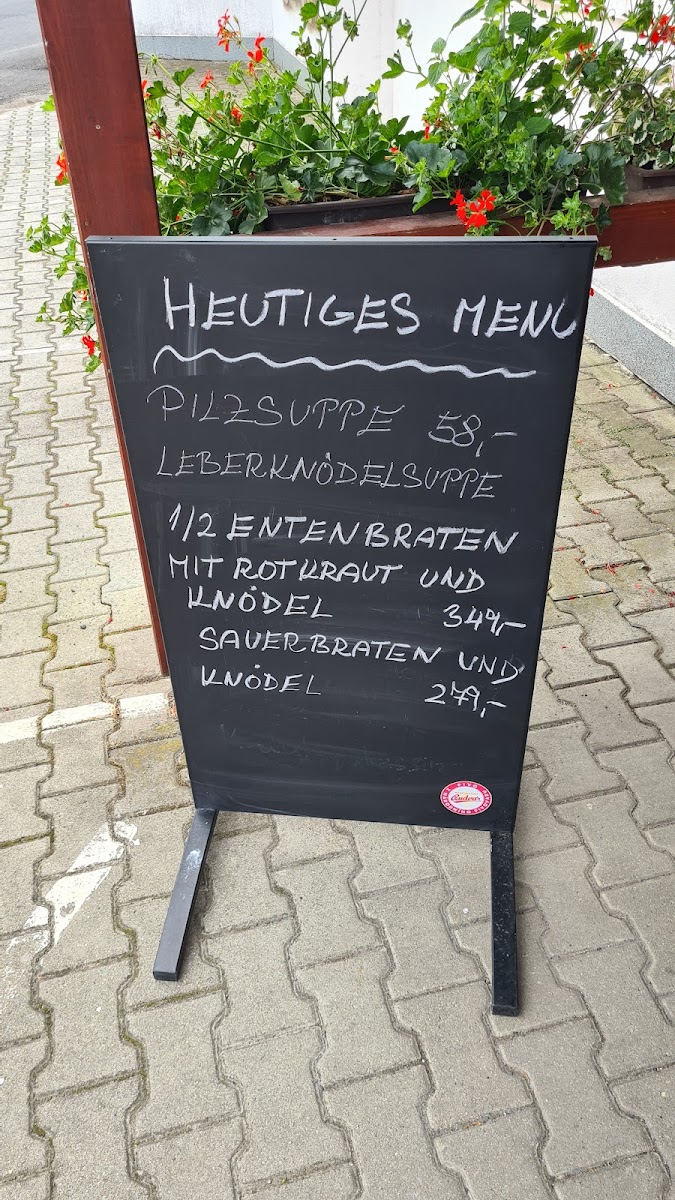 HEUTIGES MENU
PILZSUPPE 58,-
LEBERKNÖDELSUPPE
1/2 ENTENBRATEN
MIT ROTKRAUT UND
KNÖDEL 349,-
SAUERBRATEN UND
KNÖDEL 279,-
Budvar